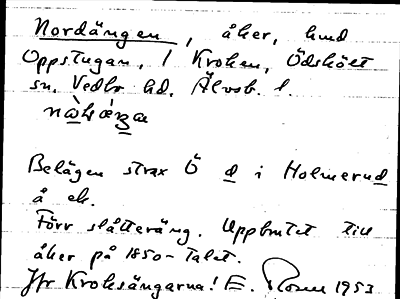 Nordängen, åker, hmd
Oppstugan, 1 Kroken, Ödskölt
sn. Vedbo hd. Älvsb. l.
Belägen strax Ö d i Holmerud
å ek.
Förr slåtteräng. Uppbrutet till
åker på 1850-talet.
Jfr Kroksängarna! E. 1953